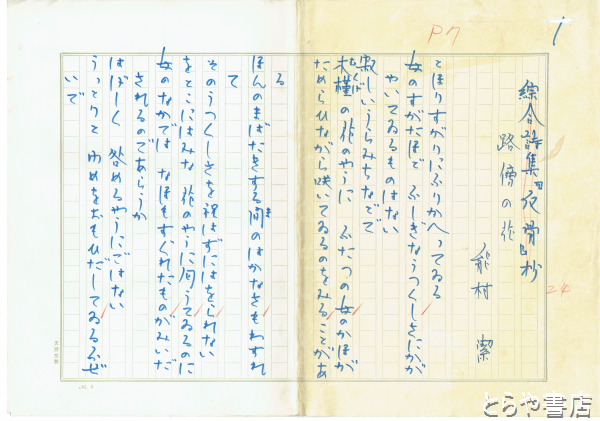 1
P7
綜合詩集『夜骨』抄
24
路傍の花
能村 潔
とほりすがりにふりかへつてゐる
女のすがたほで ふしぎなうつくしさにかが
やいてゐるものはない
寂しいうらみちなどで
木槿の花のやうに ふたつの女のかほが
ためらひながら咲いてゐるのをみることがあ
る
ほんのまばたきをする間のはかなさもわすれ
て
そのうつくしさを視はずにはをられない
をとこにはみな 花のやうに匂うてゐるのに
女のなかでは なほもすぐれたものがみいだ
されるのであらうか
はげしく 咎めるやうにではない
うつとりと ゆめをおもひだしてゐるふぜ
いで
とらや書店